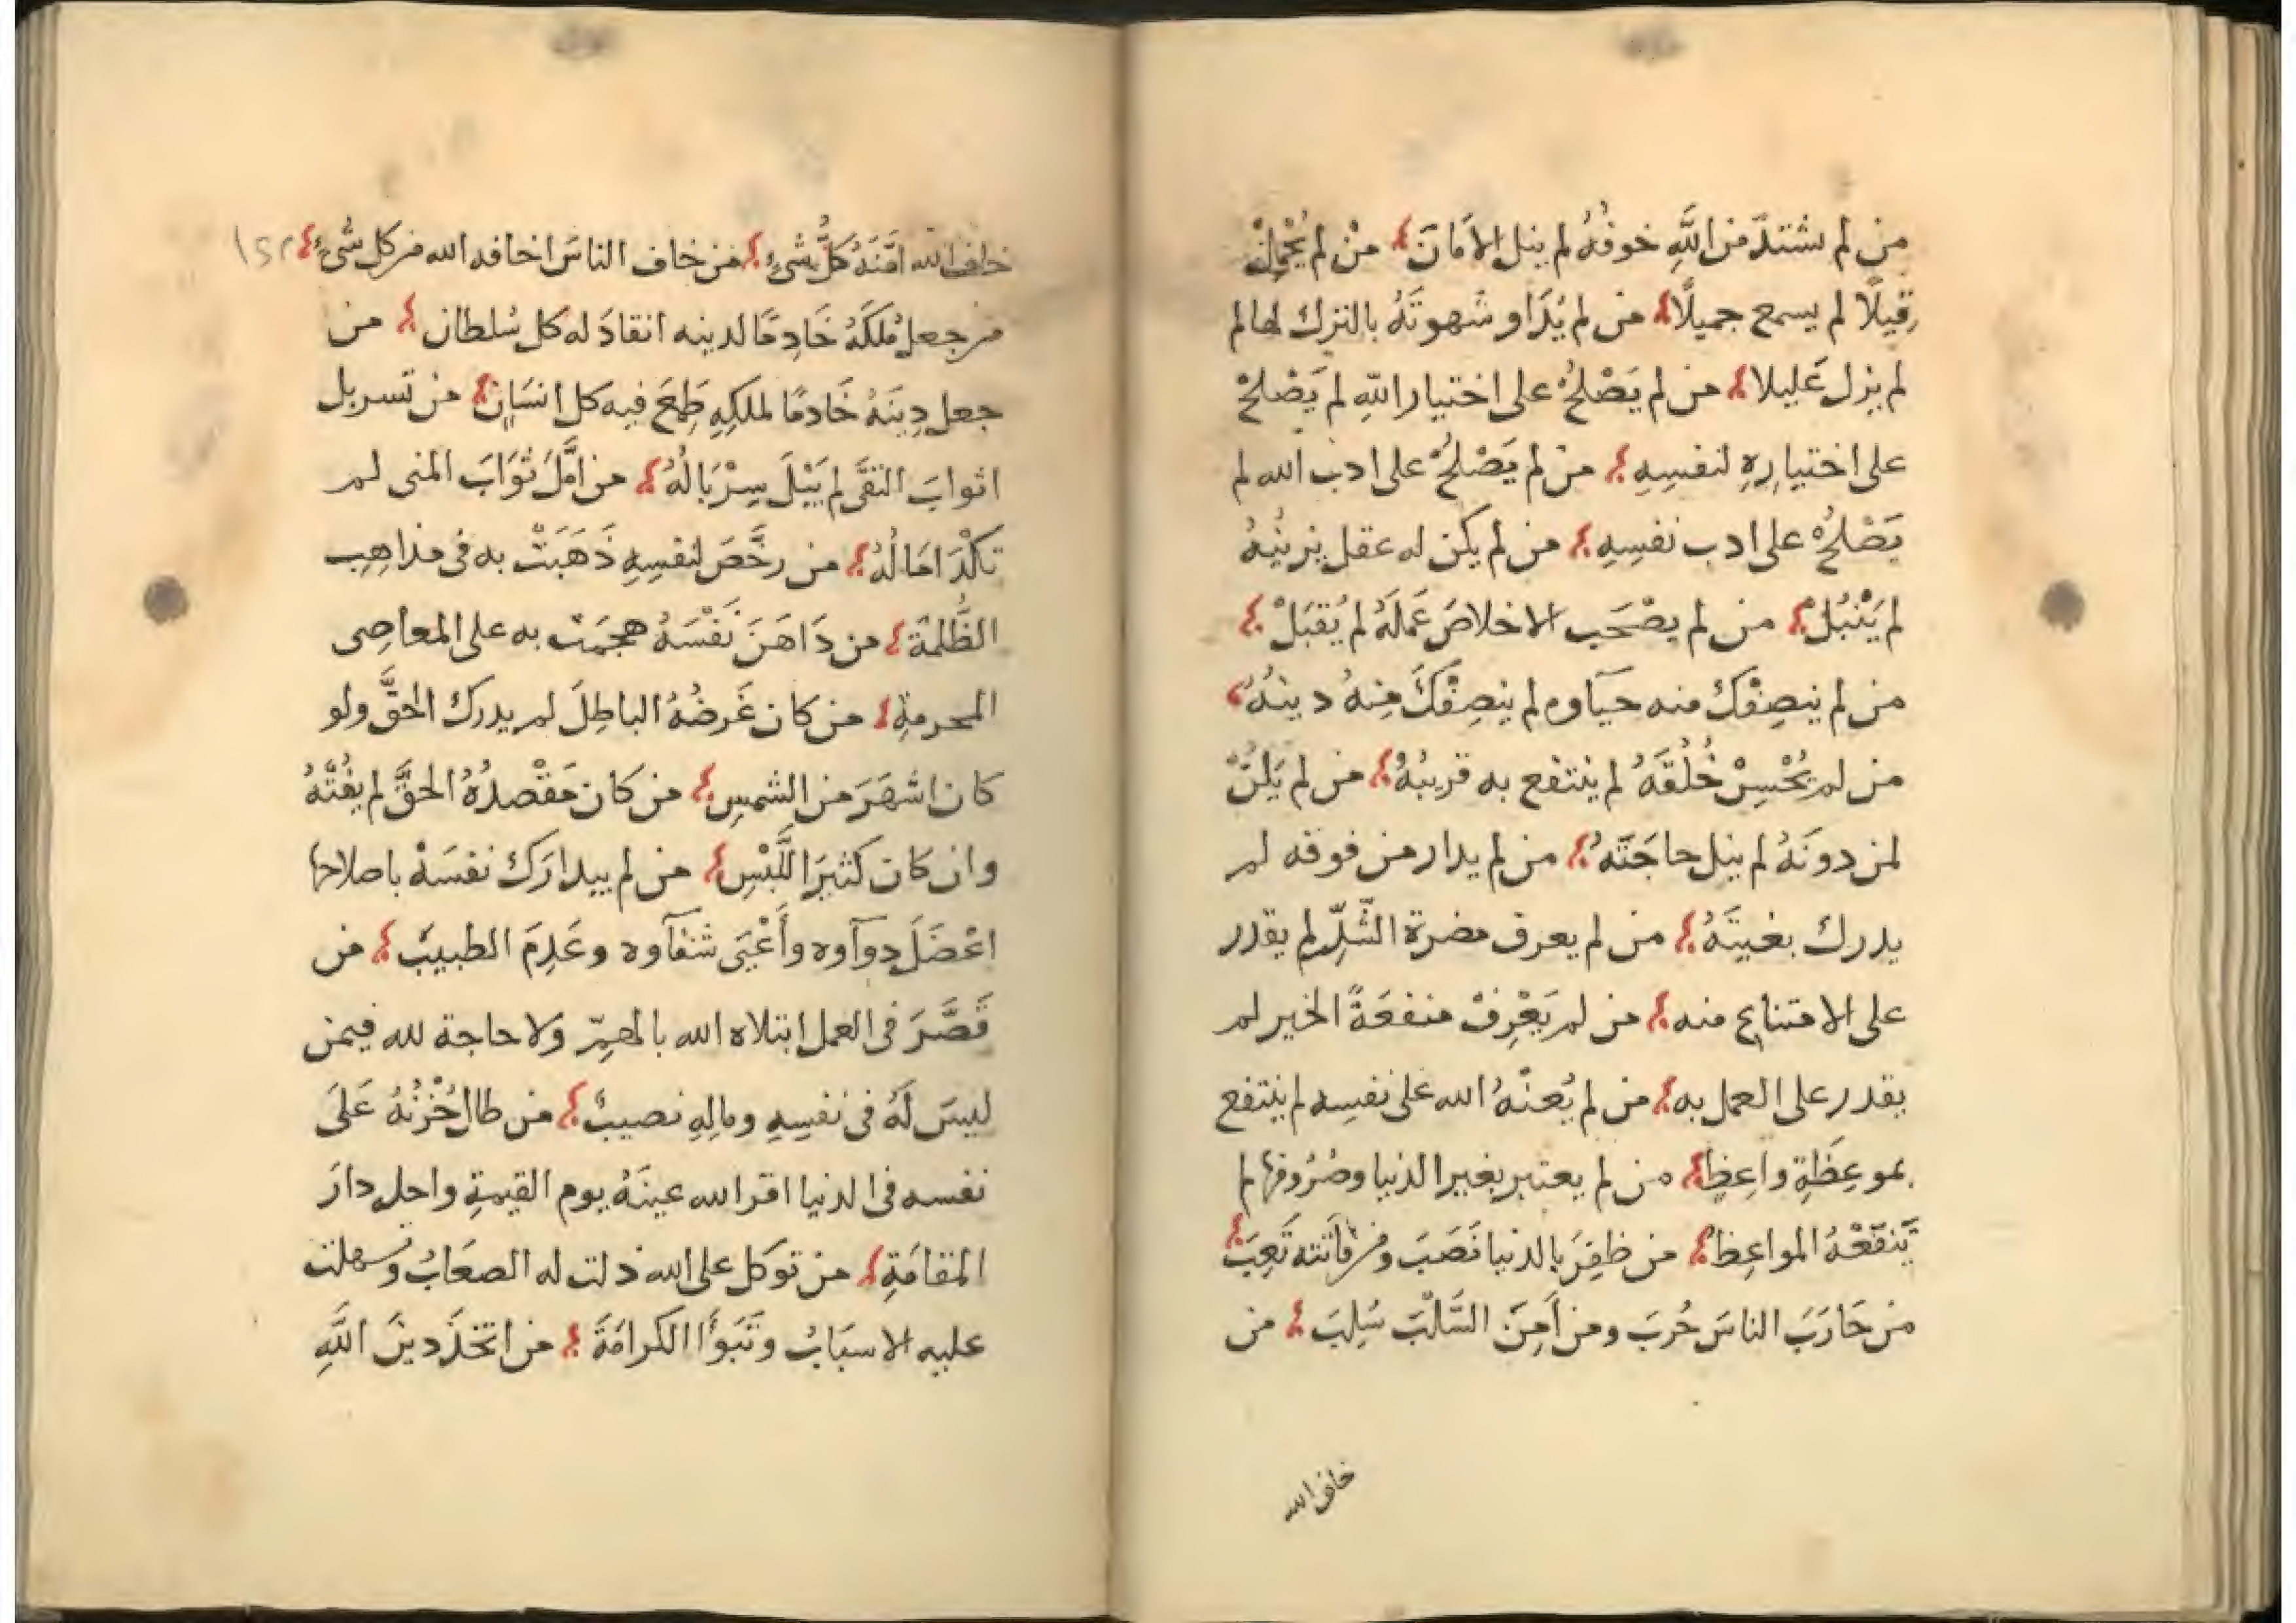 من لم يشتدّ من اللَّهِ خوفُهُ لم ينل الامَانَ من لم يُجْمِلْ
قِيلًا لم يسمع جميلًا من لم يُدَاو شهوتَهُ بالترك لها لم
لم يزل عَليلا من لم يَصْلحُ على اختيار اللّهِ لم يَصْلحْ
على اختيارِهِ لنفسِهِ من لم يَصْلحُ على ادب الله لم
يَصْلحُ على ادب نفسِهِ من لم يكن له عقل يزينُهُ
لم يَنْبُلْ من لم يصْحَب الاخلاصَ عَملَهُ لم يُقبَلْ
من لم ينصِفْكَ منه حيَاوه لم ينصِفْكَ مِنهُ دينُهُ
من لم يُحْسِنْ خُلُقَهُ لم ينتفع به قرينُهُ من لم يَلِنْ
لمن دونَهُ لم ينل حاجَتَه من لم يدار من فوقه لم
يدرك بغيتَهُ من لم يعرف مضرة الشّرِّ لم يقدر
على الامتناع منه من لم يَعْرِفْ منفعَةَ الخير لم
يقدر على العمل به من لم يُعنْهُ الله على نفسِه لم ينتفع
بموعِظَةِ واعِظٍ من لم يعتبر بغير الدنيا وصُرُوفها لم
تَنفَعْهُ المواعِظ من ظفِرَ بالدنيا نَصَبَ ومن فاتته تَعِبَ
من حَارَبَ الناسَ حُربَ ومن اَمِنَ السَّلْبَ سُلِبَ من
خاف الله
خاف الله اَمّنَهُ كلُّ شيءٍ من خاف الناسَ اخافه الله من كل شيءٍ
١٥٢
من جعل مُلكَهُ خَادِمًا لدينه انقادَ له كل سُلطان من
جعل دِينَهُ خَادمًا لملكِهِ طَمِعَ فيه كل انسَانٍ من تسربل
اثوابَ التقَى لم يَبْلَ سِرْبَالُهُ من امَّلَ ثوَابَ المنى لم
تكْدَ امَالُهُ من رخَّصَ لنفسِهِ ذَهَبَتْ به فى مذاهِبِ
الظُّلمَة من دَاهَنَ نَفْسَهُ هجمَتْ به على المعاصِى
المحرمةِ من كان غَرضُهُ الباطِلَ لم يدرك الحقَّ ولو
كان اشهَرَ من الشمسِ من كان مَقْصدُهُ الحقَّ لم يفُتْهُ
وان كان كثيرَ اللَّبْسِ من لم يتدارَك نفسَهْ باصلاحها
اعْضَلَ دوآوه وأَعْيَى شفآوه وعَدِمَ الطبيبَ من
قَصَّرَ فى العمل ابتلاه الله بالهمِّ ولا حاجة لله فيمن
ليسَ لَهُ فى نفسِهِ ومالِهِ نصيبٌ من طال حُزْنُهُ عَلَى
نفسه فى الدنيا اقر الله عينَهُ يوم القيمةِ واحله دارَ
المقامَةِ من توكل على الله ذلت له الصعَابُ وسهلت
عليه الاسبَابُ وتَبَوَّأ الكرامَةَ من اتخذَ دينَ اللَّهِ